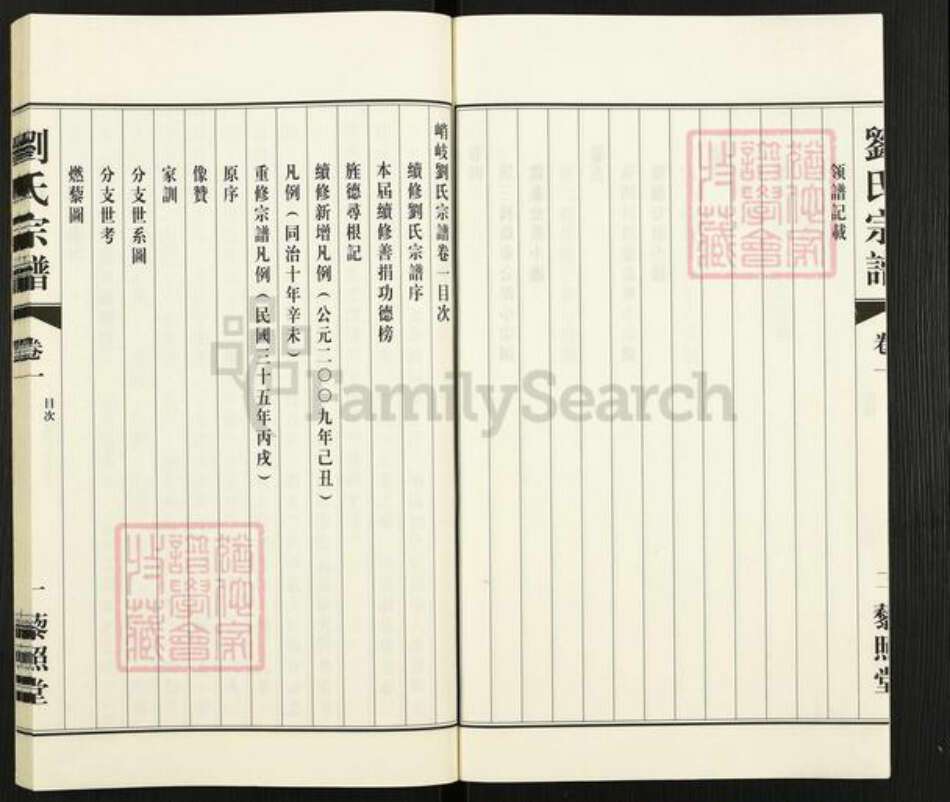 劉氏宗譜
卷一
二
藜照堂
領譜記載
猶他家
譜學會
收藏
峭岐劉氏宗譜卷一目次
續修劉氏宗譜序
本屆續修善捐功德榜
旌德尋根記
續修新增凡例(公元二〇〇九年己丑)
凡例(同治十年辛未)
重修宗譜凡例(民國三十五年丙戌)
原序
像贊
家訓
分支世系圖
分支世考
燃藜圖
猶他家
譜學會
收藏
劉氏宗譜
卷一
目次
一
藜照堂
FamilySearch